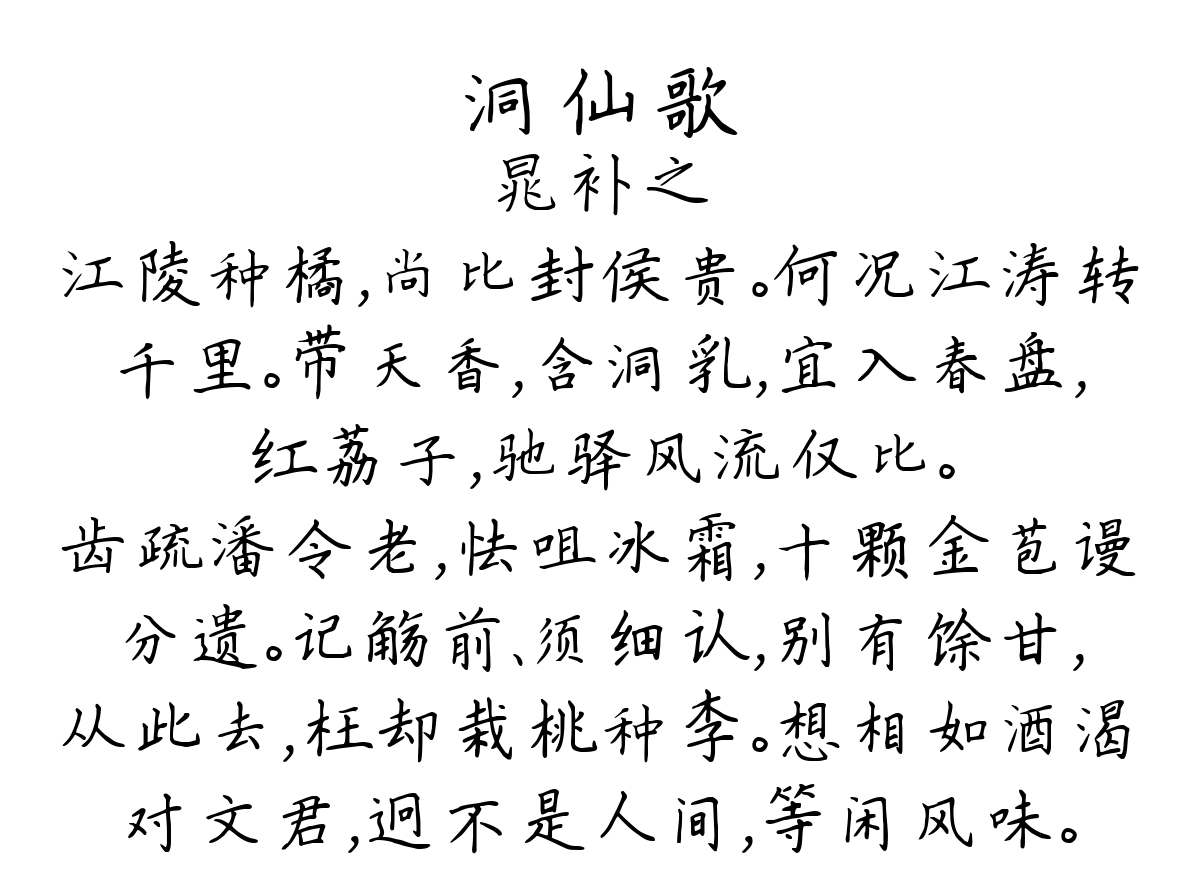 洞仙歌
晁补之
江陵种橘,尚比封侯贵。何况江涛转
千里。带天香,含洞乳,宜入春盘,
红荔子,驰驿风流仅比。
齿疏潘令老,怯咀冰霜,十颗金苞谩
分遗。记觞前、须细认,别有馀甘,
从此去,枉却栽桃种李。想相如酒渴
对文君,迥不是人间,等闲风味。